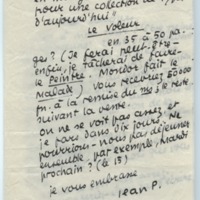 pour une collection de types
d'aujourd'hui"
le Voleur
en 35 à 50 pa.
ges? (Je ferai peut-être
ensuite, je tâcherai de faire
le Peintre. Monitor fait le
malade) Vous recevrez 50000
fr. à la remise du ms le reste
suivant la vente.
on ne se voit pas assez, et
je pars dans dix jours. Ne
pourrions-nous pas déjeuner
ensemble, par exemple, mardi
prochain? (le 13)
je vous embrasse
Jean P.